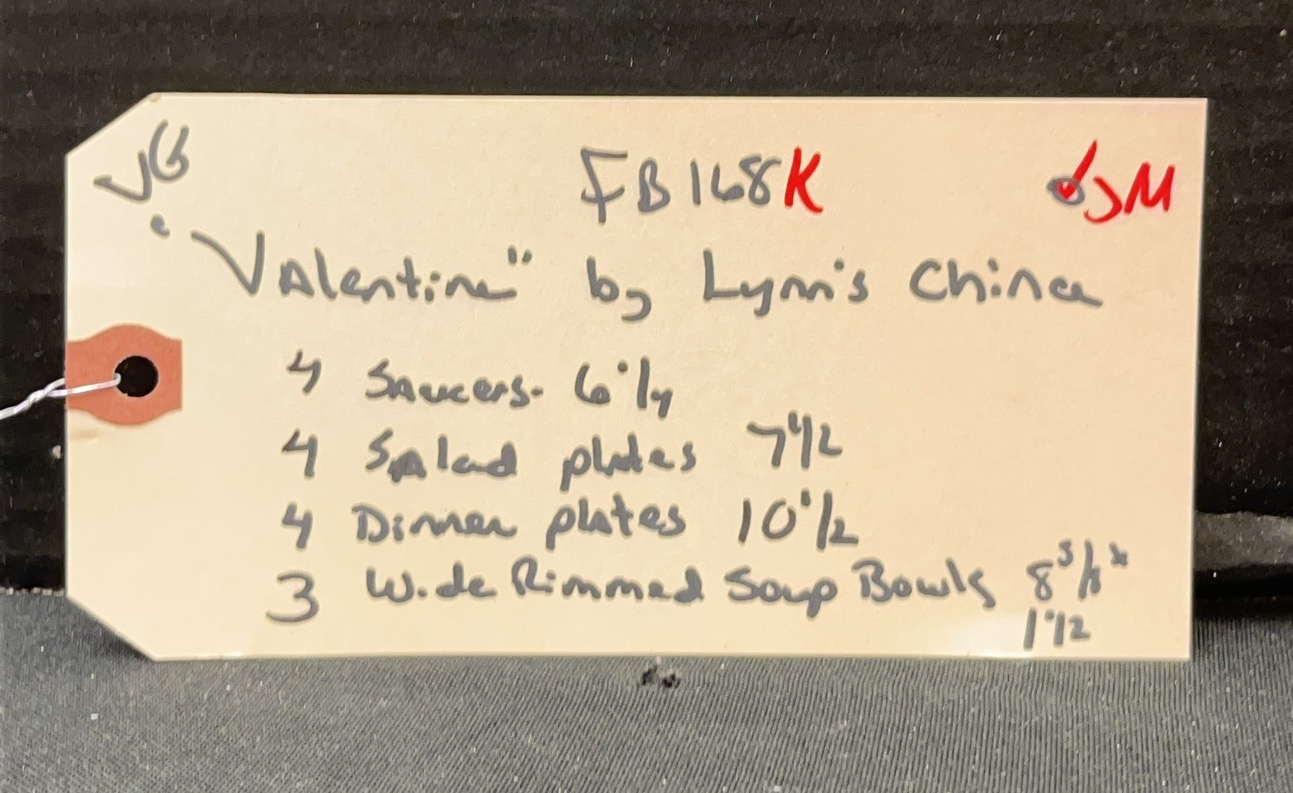 VG FB168K JM
"Valentine" by Lynn's China
4 Saucers- 6 1/4
4 Salad plates 7 1/2
4 Dinner plates 10 1/2
3 Wide Rimmed Soup Bowls 8 3/8 x
1 1/2